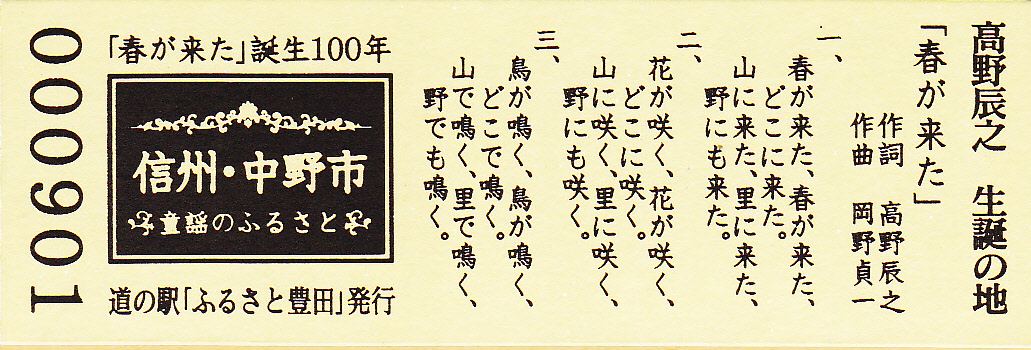 高野辰之　生誕の地
「春が来た」
作詞　高野辰之
作曲　岡野貞一
一、
春が来た、春が来た、
どこに来た。
山に来た、里に来た、
野にも来た。
二、
花が咲く、花が咲く、
どこに咲く。
山に咲く、里に咲く、
野にも咲く。
三、
鳥が鳴く、鳥が鳴く、
どこで鳴く。
山で鳴く、里で鳴く、
野でも鳴く。
「春が来た」誕生100年
信州・中野市
童謡のふるさと
道の駅「ふるさと豊田」発行
000901